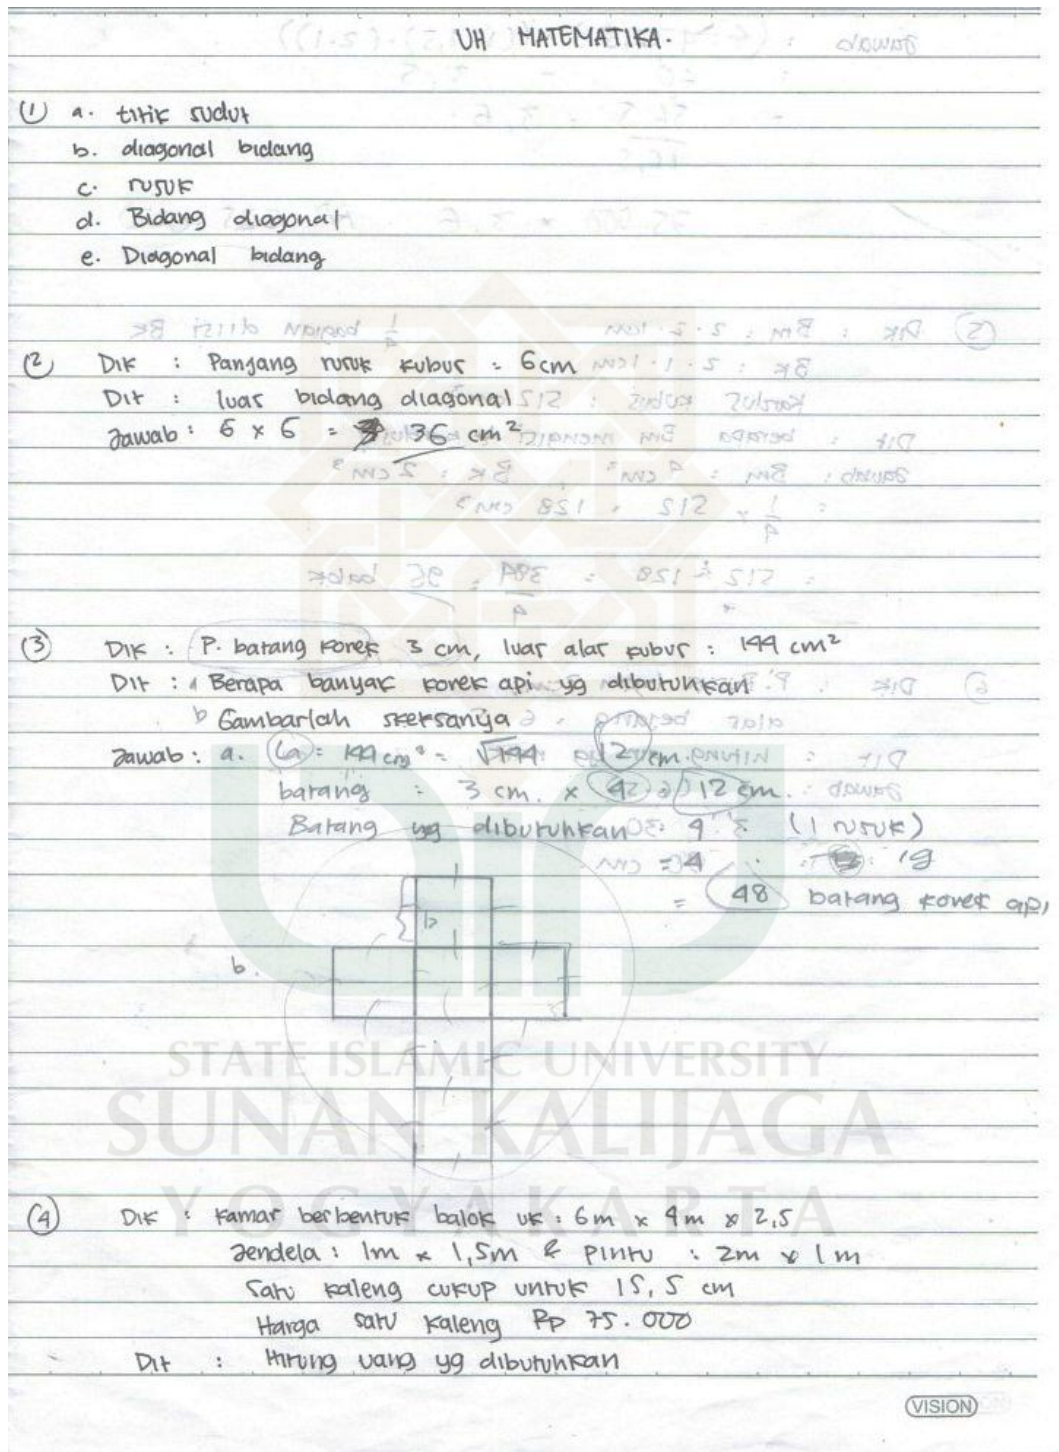 UH MATEMATIKA.
① a. titik sudut
b. diagonal bidang
c. rusuk
d. Bidang diagonal
e. Diagonal bidang
② Dik : Panjang rusuk kubus = 6cm
Dit : luas bidang diagonal
Jawab : 6 x 6 = 36 cm²
③ Dik : P. batang korek 3 cm, luas alas kubus : 144 cm²
Dit : a Berapa banyak korek api yg dibutuhkan
b Gambarlah sketsanya
Jawab : a. La = 144 cm² = √144 = 12 cm.
batang : 3 cm. x 4 = 12 cm.
Batang yg dibutuhkan = 4 (1 rusuk)
= 4
= 48 batang korek api
b.
④ Dik : Kamar berbentuk balok uk : 6m x 4m x 2,5
Jendela : 1m x 1,5m & Pintu : 2m x 1m
Satu kaleng cukup untuk 15,5 cm
Harga satu kaleng Rp 75.000
Dit : Hitung uang yg dibutuhkan
STATE ISLAMIC UNIVERSITY
SUNAN KALIJAGA
YOGYAKARTA
VISION